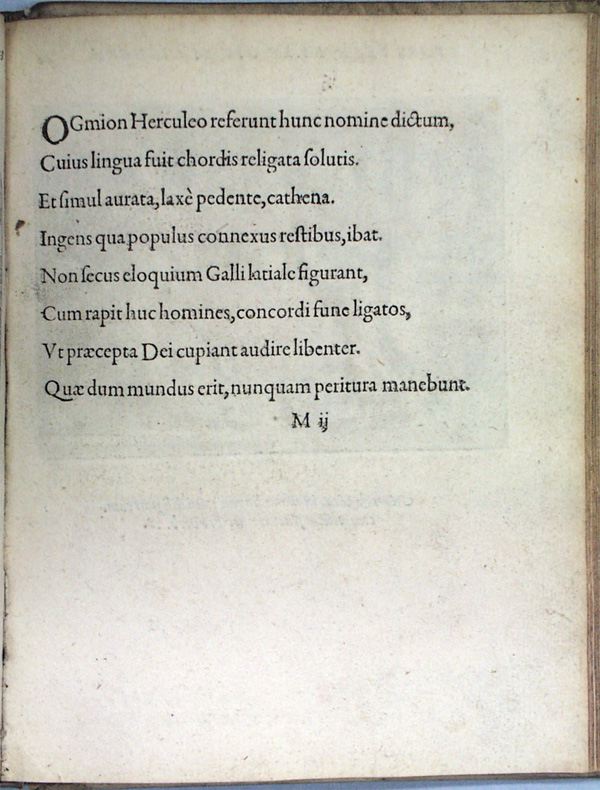 OGmion Herculeo referunt hunc nomine dictum,
Cuius lingua fuit chordis religata ſolutis.
Et ſimul aurata, laxè pedente, cathena.
Ingens qua populus connexus reſtibus, ibat.
Non ſecus eloquium Galli latiale figurant,
Cum rapit huc homines, concordi fune ligatos,
Vt præcepta Dei cupiant audire libenter.
Quæ dum mundus erit, nunquam peritura manebunt.
M ij